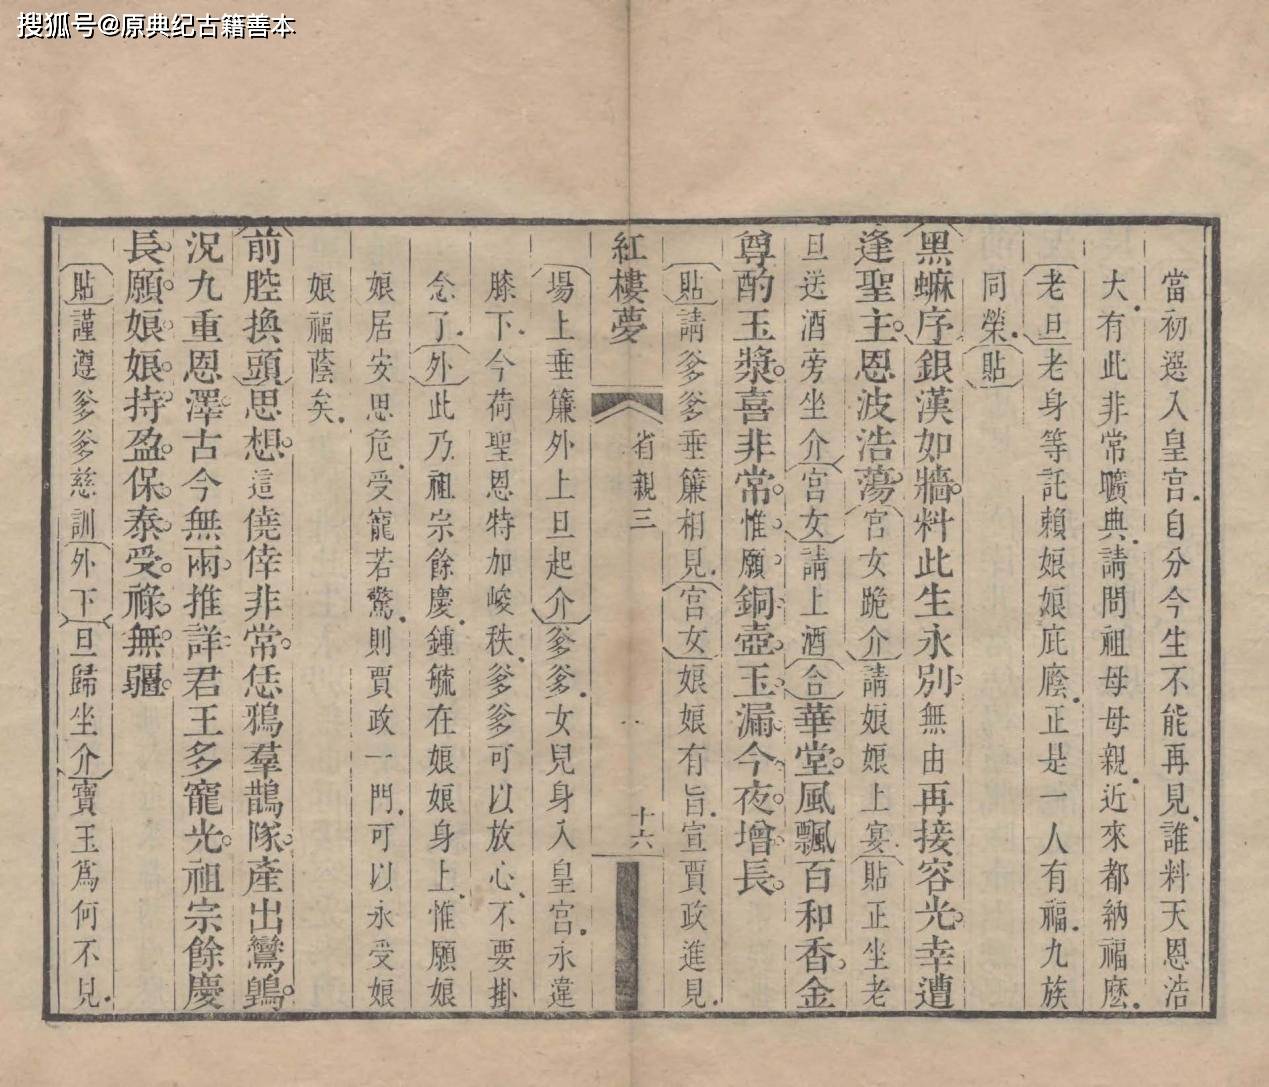 搜狐号@原典纪古籍善本
當初選入皇宮自分今生不能再見誰料天恩浩
大有此非常曠典請問祖母母親近來都納福麽
老旦老身等託賴娘娘庇廕正是一人有福九族
同榮貼
黑蟆序銀漢如牆料此生永別無由再接容光幸遭
逢聖主恩波浩蕩宮女跪介請娘娘上宴貼正坐老
旦送酒旁坐介宮女請上酒合華堂風飄百和香金
尊酌玉漿喜非常惟願銅壺玉漏今夜增長
貼請爹爹垂簾相見宮女娘娘有旨宣賈政進見
紅樓夢
省親三
十六
場上垂簾外上旦起介爹爹女兒身入皇宮永違
膝下今荷聖恩特加峻秩爹爹可以放心不要掛
念了外此乃祖宗餘慶鍾毓在娘娘身上惟願娘
娘居安思危受寵若驚則賈政一門可以永受娘
娘福蔭矣
前腔換頭思想這僥倖非常恁鴉羣鵲隊產出鸞鷞
況九重恩澤古今無兩推詳君王多寵光祖宗餘慶
長願娘娘持盈保泰受祿無疆
貼謹遵爹爹慈訓外下旦歸坐介寶玉爲何不見